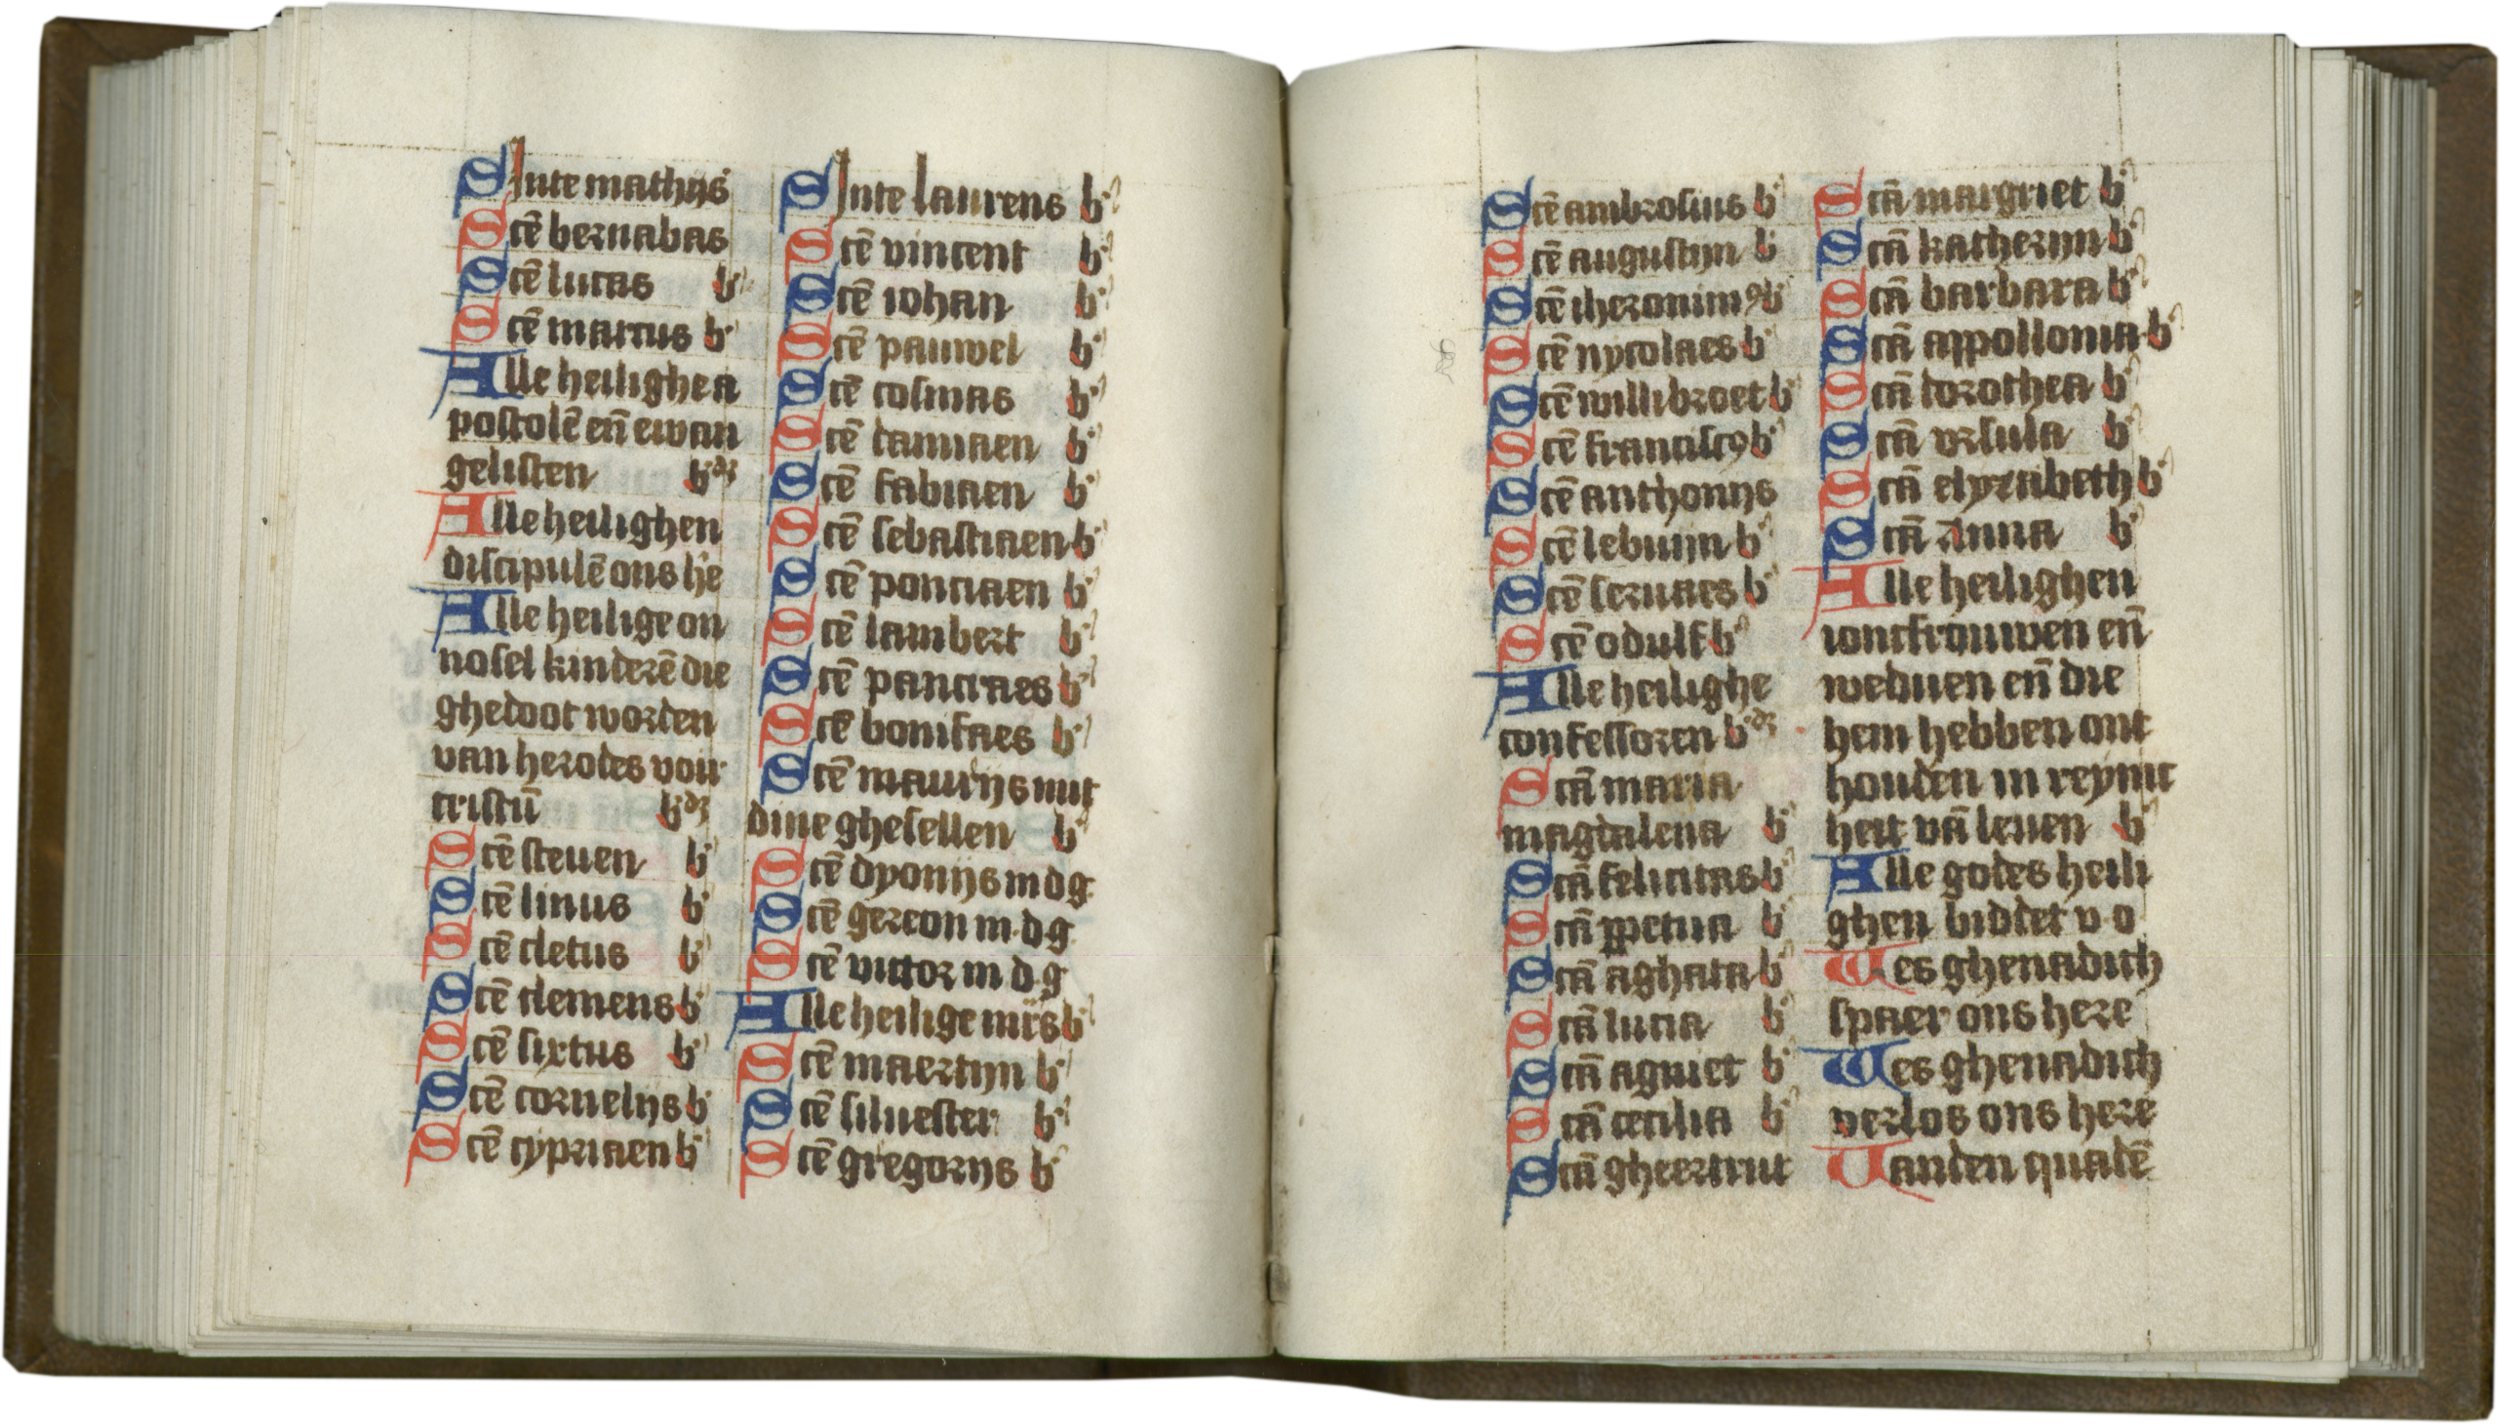 Sinte mathijs
Scē bernabas
Scē lucas b'
Scē marcus b'
Alle heilighe a
postolē eñ ewan
gelisten b'dꝫ
Alle heilighen
discipulē ons h'e
Alle heilige on
nosel kinderē die
ghedoot worden
van herodes voir
cristū b'dꝫ
Scē steuen b'
Scē linus b'
Scē cletus b'
Scē clemens b'
Scē sixtus b'
Scē cornelijs b'
Scē cypriaen b'
Sinte laurens b'
Scē vincent b'
Scē iohan b'
Scē pauwel b'
Scē cosmas b'
Scē damiaen b'
Scē fabiaen b'
Scē sebastiaen b'
Scē ponciaen b'
Scē lambert b'
Scē pancraes b'
Scē bonifaes b'
Scē maurijs mit
dine ghesellen b'
Scē dyonijs m d g
Scē gereon m d g
Scē victor m d g
Alle heilige mr̄s b'
Scē maertijn b'
Scē siluester b'
Scē gregorijs b'
Scē ambrosius b'
Scē augustijn b'
Scē iheronimꝰ b'
Scē nycolaes b'
Scē willibroet b'
Scē francisco b'
Scē anthonijs
Scē lebuijn b'
Scē seruaes b'
Scē odulf b'
Alle heilighe
confessoren b'dꝫ
Scā maria
magdalena b'
Scā felicitas b'
Scā ꝑpetua b'
Scā aghata b'
Scā lucia b'
Scā agniet b'
Scā cecilia b'
Scā gheertrut
Scā margriet b'
Scā katherijn b'
Scā barbara b'
Scā appollonia b'
Scā dorothea b'
Scā vrsula b'
Scā elyzabeth b'
Scā Anna b'
Alle heilighen
ioncfrouwen eñ
weduen eñ die
hem hebben ont
houden in reynic
heit vā leuen b'
Alle godes heili
ghen biddet v o
Wes ghenadich
spaer ons here
Wes ghenadich
verlos ons here
Vanden quadē